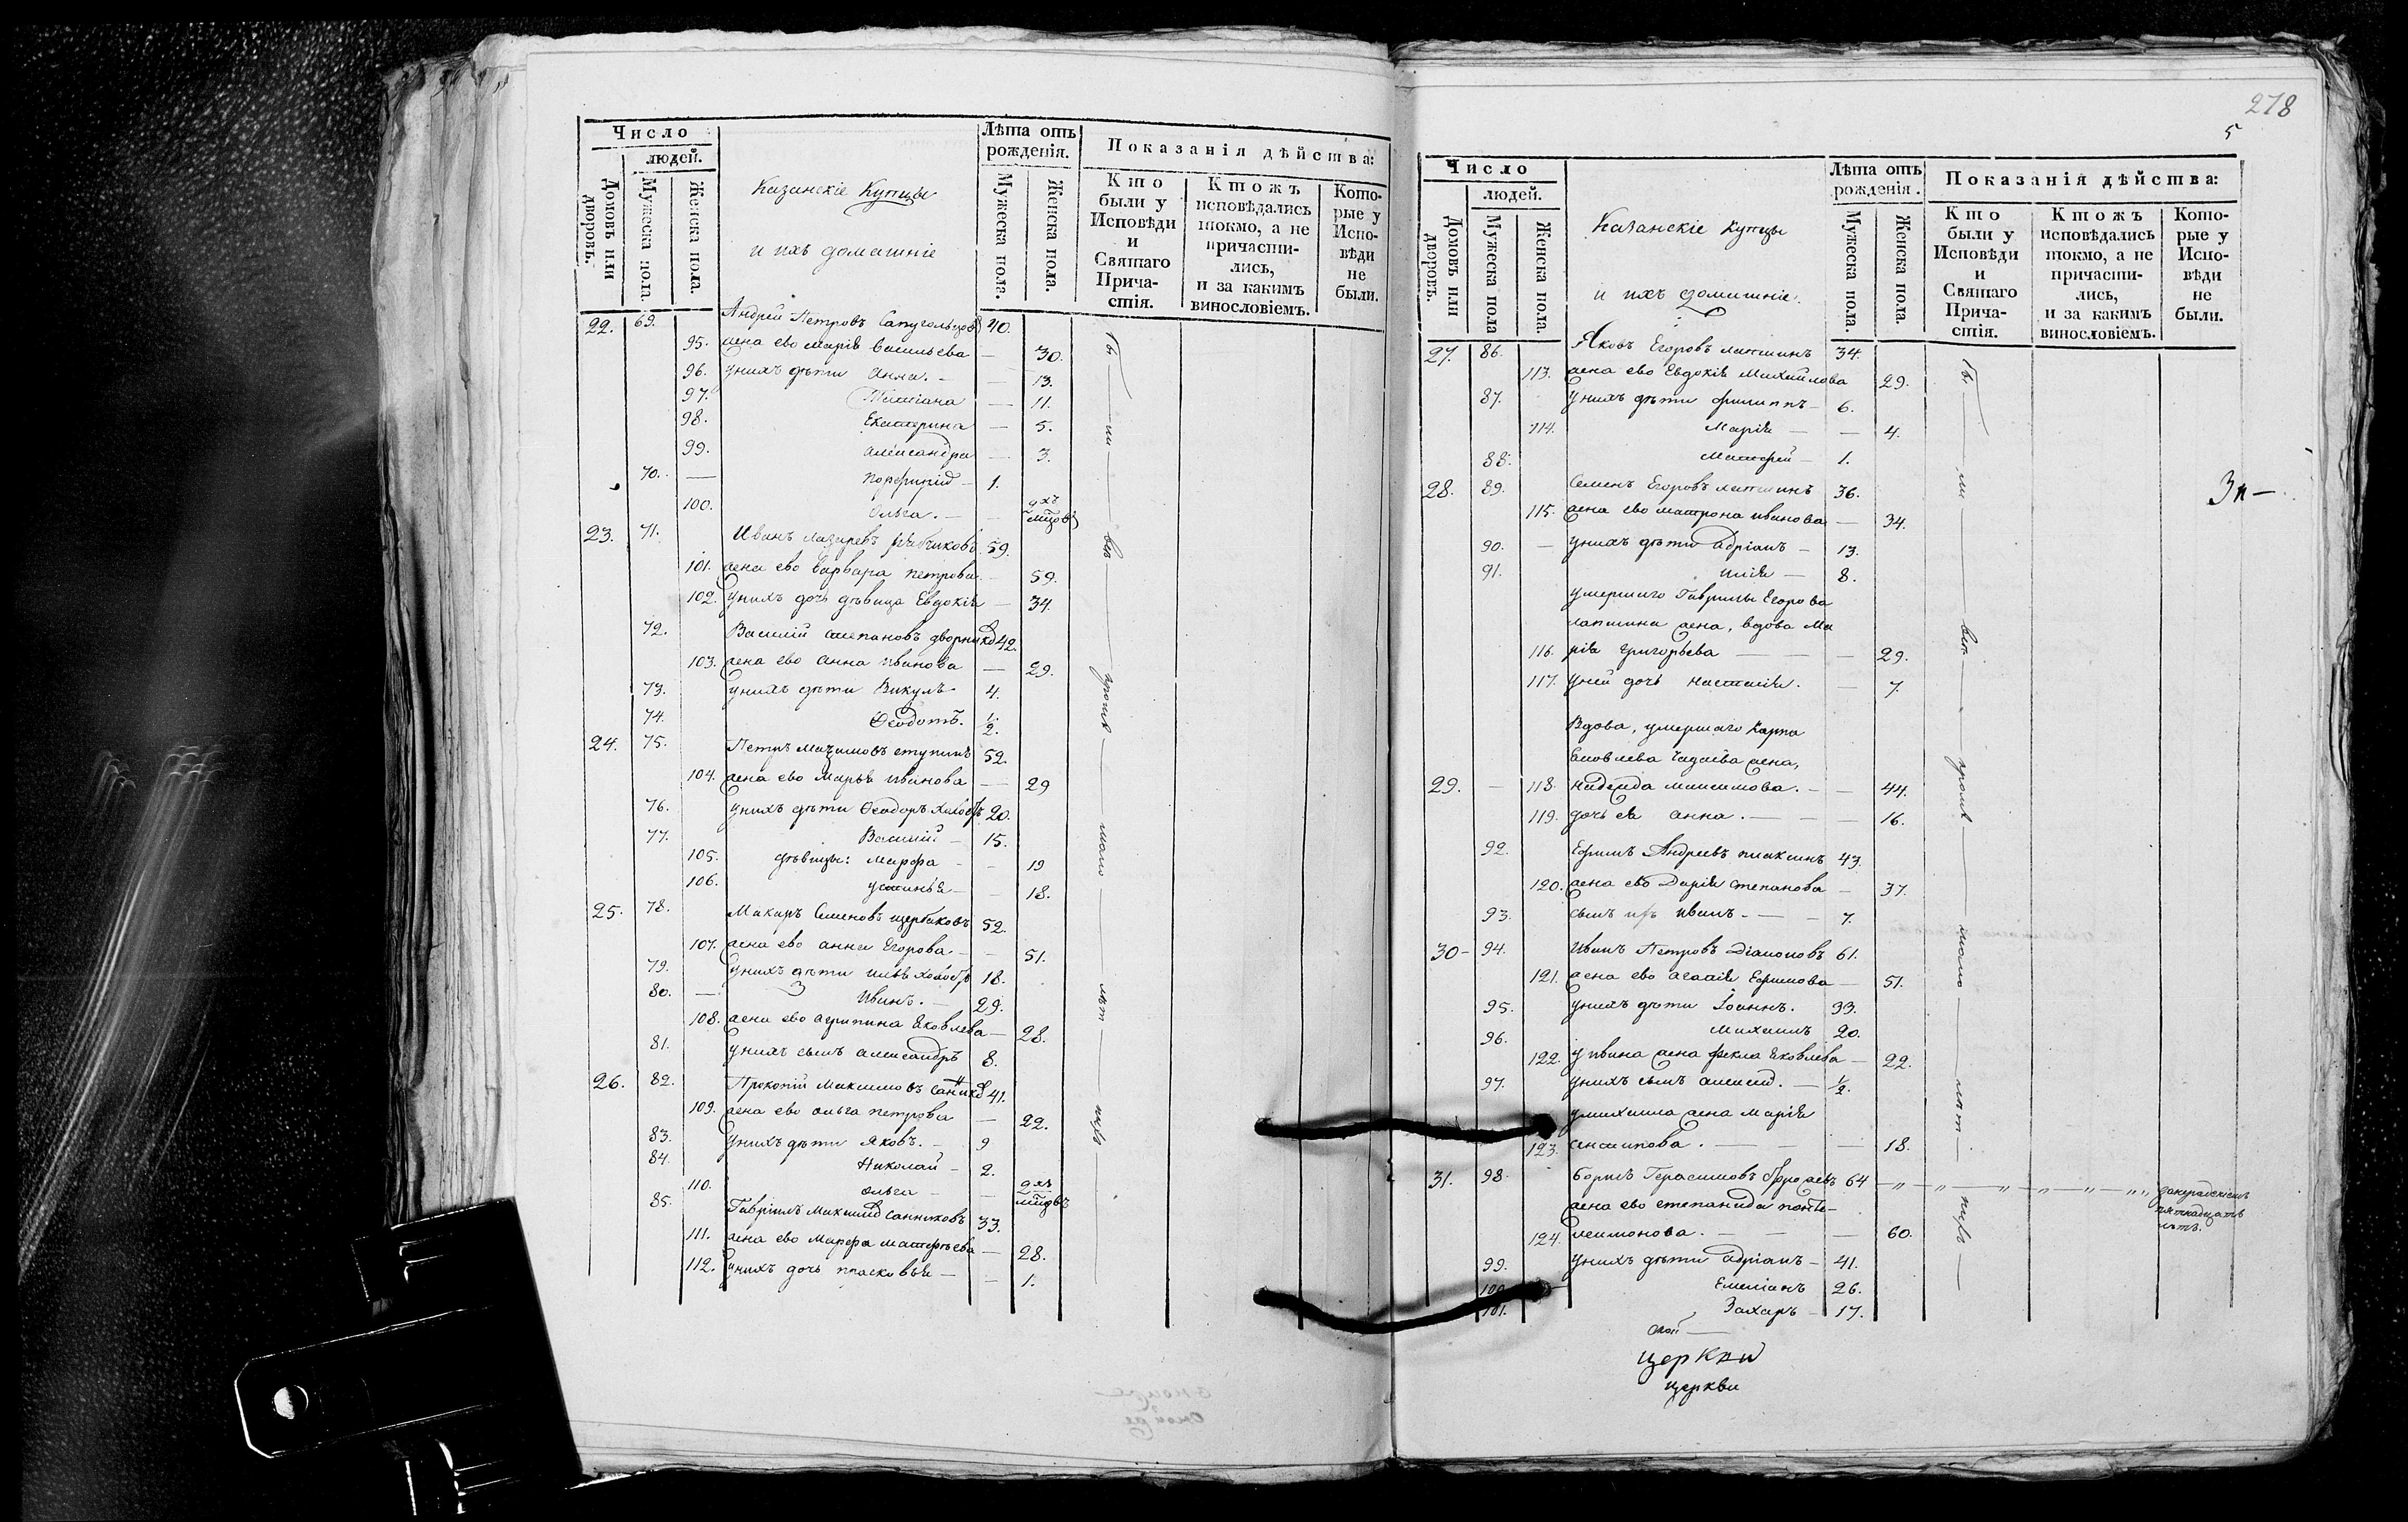 Число
людей.
Домовъ или дворовъ.
Мужеска пола.
Женска пола.
Казанскіе Купцы
и ихъ домашніе
Лѣта отъ рожденія.
Мужеска пола.
Женска пола.
Показанія дѣйства:
Кто были у Исповѣди и Святаго Прича-стія.
Ктожъ исповѣдались токмо, а не причасти-лись, и за какимъ винословіемъ.
Кото-рые у Испо-вѣди не были.
22. 69. Андрей Петровъ 40.
95. жена ево Марія Васильева — 30.
96. у нихъ дѣти Анна. — 13.
97. Татіана — 11.
98. Екатерина — 5.
99. Александра — 3.
70. — Порфирій — 1.
100. Ольга. — 9хъ мцовъ
23. 71. Иванъ Лазаревъ Рябчиковъ 59.
101. жена ево Варвара Петрова. — 59.
102. у нихъ дочь дѣвица Евдокія — 34.
72. Василій Степановъ Дворниковъ 42.
103. жена ево Анна Иванова — 29.
73. у нихъ дѣти Викулъ 4.
74. Ѳеодотъ. 1/2.
24. 75. Петръ Ступинъ 52.
104. жена ево Марья Иванова — 29
76. у нихъ дѣти Ѳеодоръ холостъ 20.
77. Василій — 15.
105. дѣвицы: Марфа — 19
106. Устинья — 18.
25. 78. Макаръ Семеновъ Щербаковъ 52.
107. жена ево Анна Егорова — 51.
79. у нихъ дѣти Илья холостъ 18.
80. — Иванъ. — 29.
108. жена ево Агрипина Яковлева — 28.
81. у нихъ сынъ Александръ 8.
26. 82. Прокопій Максимовъ Санниковъ 41.
109. жена ево Ольга Петрова — 22.
83. у нихъ дѣти Яковъ. — 9
84. Николай — 2.
110. Ольга — 9хъ мцовъ
85. Гавріилъ Максимовъ Санниковъ 33.
111. жена ево Марфа Матфѣева — 28.
112. у нихъ дочь Прасковья — 1.
278
5
Число
людей.
Домовъ или дворовъ.
Мужеска пола
Женска пола.
Казанскіе Купцы
и ихъ домашніе.
Лѣта отъ рожденія.
Мужеска пола.
Женска пола.
Показанія дѣйства:
Кто были у Исповѣди и Святаго Прича-стія.
Ктожъ исповѣдались токмо, а не причасти-лись, и за какимъ винословіемъ.
Кото-рые у Испо-вѣди не были.
27. 86. Яковъ Егоровъ Лапшинъ 34.
113. жена ево Евдокія Михайлова 29.
87. у нихъ дѣти Филиппъ — 6.
114. Марія — 4.
88. Матфей — 1.
28. 89. Семенъ Егоровъ Лапшинъ 36.
115. жена ево Матрона Иванова — 34.
90. — у нихъ дѣти Адріанъ — 13.
91. Илія — 8.
умершаго Гаврилы Егорова
Лапшина жена, вдова Ма
116. рія Григорьева — 29.
117. у ней дочь Настасія. — 7.
Вдова, умершаго Карпа
Яковлева Чадаева жена,
29. — 118. Надежда Максимова. — 44.
119. дочь ея Анна. — 16.
92. Ефимъ Андреевъ Плаксинъ 43.
120. жена ево Дарія Степанова — 37.
93. сынъ ихъ Иванъ — 7.
30 — 94. Иванъ Петровъ 61.
121. жена ево Агапія Ефимова — 51.
95. у нихъ дѣти Іоаннъ. 33.
96. Михаилъ 20.
122. у Ивана жена Фекла Яковлева — 22.
97. у нихъ сынъ Алексѣй. — 1/2.
у Михаила жена Марія
123. — 18.
31. 98. Борисъ Герасимовъ 64
жена ево Степанида Панте-
124. леимонова. — 60.
99. у нихъ дѣти Адріанъ — 41.
100. Емеліанъ 26.
101. Захаръ — 17.
пятнадцать
лѣтъ.
церкви
церкви